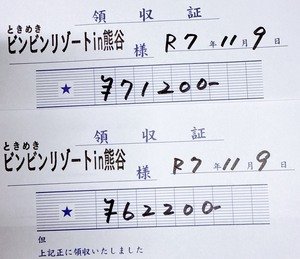 領収証
ときめき
ピンピンリゾートin熊谷 様 R7年11月9日
★ ¥71200-
領収証
ときめき
ピンピンリゾートin熊谷 様 R7年11月9日
★ ¥62200-
但
上記正に領収いたしました